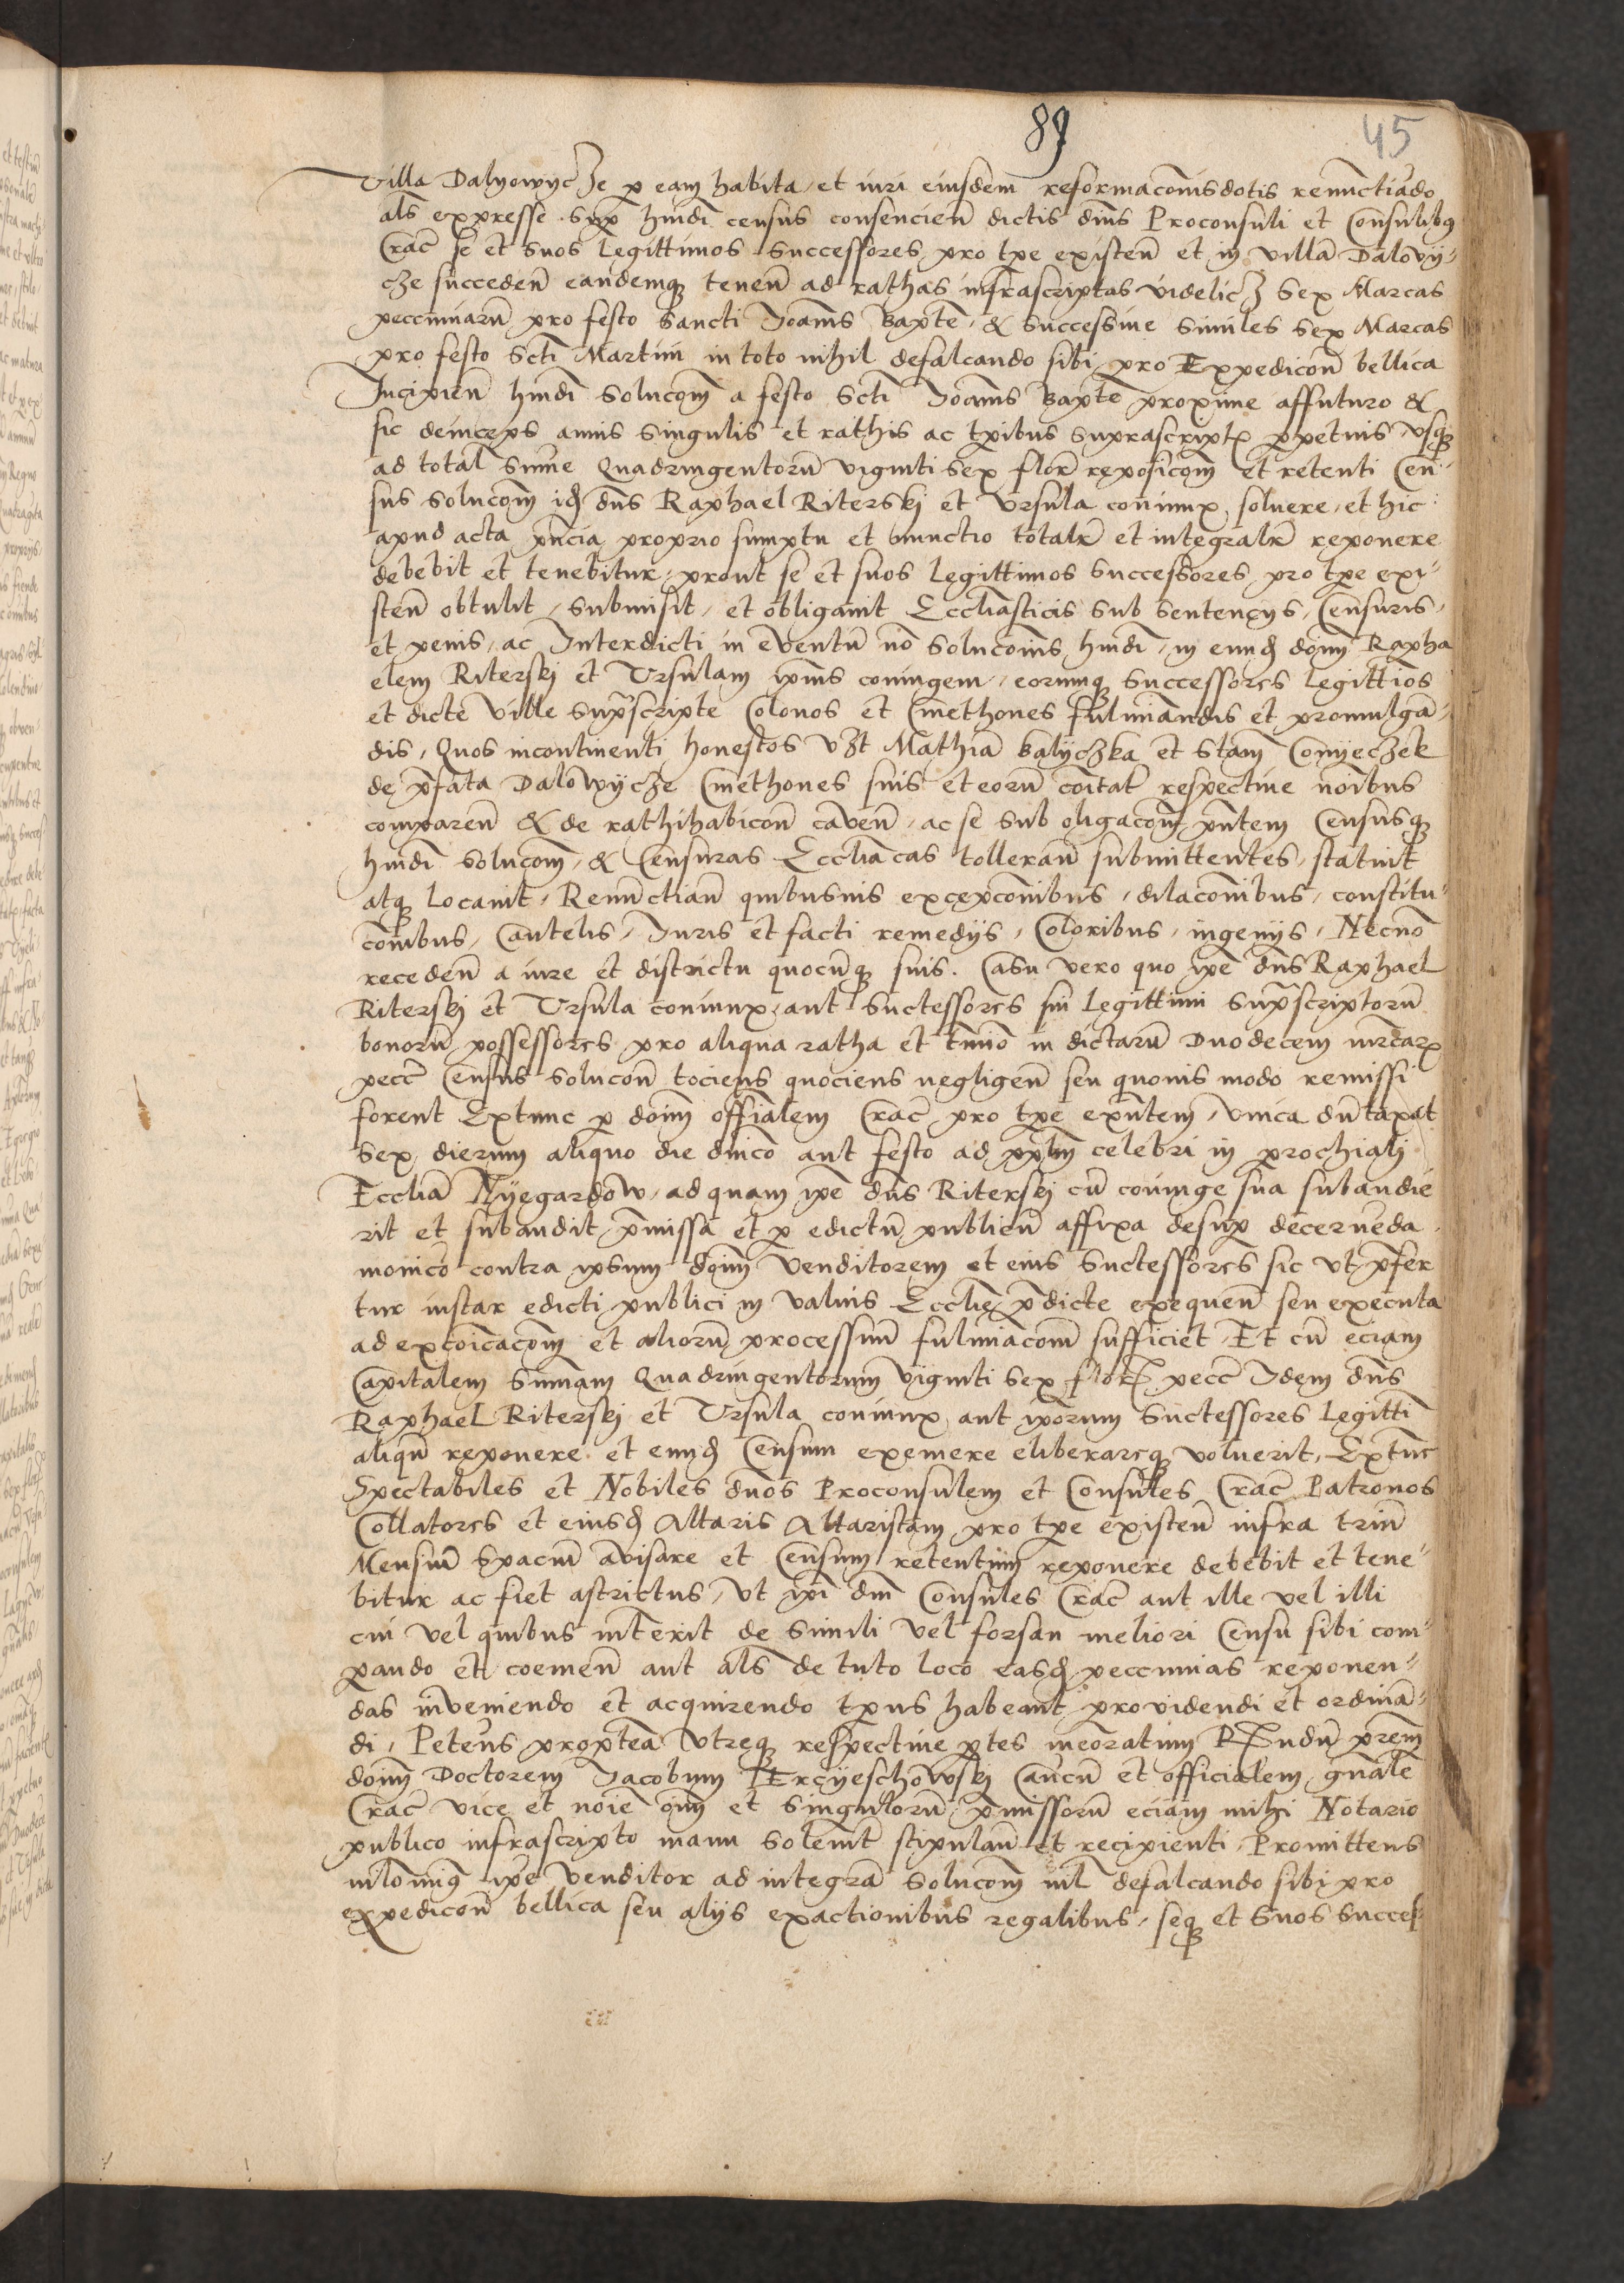 89 45
Villa Dalyowycze p eam habita, et iuri eiusdem reformacoīs dotis renūctiādo
als expresse sup hmōi census consencień dictis dnīs Proconsuli et Consulibꝫ
Crac̄ se et suos legittimos successores pro tpe existeń et in villā Dalowy-
cze succedeń eandemqꝫ teneń ad rathas infrascriptas videlicꝫ Sex Marcas
peccuniarū pro festo Sancti Joanīs Bapte, & successiue similes sex Marcas
pro festo Scti Martini in toto nihil defalcando sibi pro Expedicoń bellica
Incipień hmōi solucoēm a festo Scti Joanīs Bapte proxime affuturo &
sic deinceps annis singulis et rathis ac tpibus suprascriptꝭ ppetuis, vsqꝫ
ad total̄ Sūme Quadringentorū viginti sex flor̄ reposicoēm et retenti Cen-
sus solucoēm idē dns Raphael Riterskj et Vrsula coniunx, soluere, et hic
apud acta pn̄cia proprio sumptu et munctio totalr̄ et integralr̄ reponere
debebit et tenebitur, prout se et suos legittimos successores pro tpe exi-
steń obtulit, submisit, et obligauit Ecclīasticis sub sentencys, Censuris,
et penis, ac Interdicti in euentū nō solucoīs hmōi, in eundē doīm Rapha
elem Riterskj et Vrsulam ipīus coniugem, eorumqꝫ successores legittīos
et dicte ville suprascripte Colonos et Cmethones fulminandis et promulgā-
dis, Quos incontinenti honestos vꝫt Mathiā Balyczka et Stanī Comyeczek
de pfata Dalowycze Cmethones suis et eorū coītat̄ respectiue noībus
compareń & de rathihabicoń caueń, ac se sub oligacoēm pn̄tem Censusqꝫ
hmōi solucoēm, & Censuras Ecclīacas tollerań submittentes, statuit
atqꝫ locauit, Renūctiań quibusuis excepcoībus, dilacoībus, constitu-
coībus, Cautelis, Iuris et facti remedijs, Coloribus, ingenijs, Necnō
recedeń a iure et districtu quocūqꝫ suis. Casu vero quo ipe dns Raphael
Riterskj et Vrsula coniunx, aut Suctessores sui legittimi suprascriptorū
bonorū possessores pro aliqua ratha et tmīo in dictarū Duodecem mrcarꝭ
pecc̄ Census solucoń tociens quociens negligeń seu quouis modo remissi
forent Extunc p doīm offīalem Crac̄ pro tpe exn̄tem, vnica dūtaxat
Sex dierum aliquo die dnīco aut festo ad pplm̄ celebri in prochialj
Ecclīa Nyegardow, ad quam ipe dns Riterskj cū coniuge sua subaudie
rit et subaudit, pmissa et p edictū publicū affixa desup decerneda
monicō contra ipsum doīm Venditorem et eius Suctessores sic ut pfer
tur instar edicti publici in valuis Ecclīe pdicte exequeń seu executa
ad excoīcacoēm et aliorū processuū fulminacoēm sufficiet, Et cū eciam
Capitalem Sūmam Quadringentorum viginti Sex florꝭ pecc̄ Idem dns
Raphael Riterskj et Vrsula coniunx, aut ipōrum Suctessores legittī
aliqū reponere et eundē Censum exemere eliberareqꝫ voluerit, Extūc
Spectabiles et Nobiles dnos Proconsulem et Consules Crac̄ Patronos
Collatores et eiusdē Altaris Altaristam pro tpe existeń infra triū
Mensiū Spaciū auisare et Censum retentum reponere debebit et tene-
bitur ac fiet astrictus, vt ipī dnī Consules Crac̄ aut ille vel illi
cui vel quibus intērit de simili vel forsan meliori Censu sibi com-
pando et coemeń aut als de tuto loco easdē peccunias reponen-
das inveniendo et acquirendo tpus habeant, providendi et ordinā-
di, Petens proptea vtreqꝫ respectiue ptes meōratum Rꝭndū prem̄
doīm Doctorem Jacobum Erczyeschowskj Cancū et officialem gnāle
Crac̄ vice et noīe oīm et singulorū pmissorū eciam mihi Notario
publico infrascripto manu solemt̄ stipulań et recipienti, Promittens
nihlomīqꝫ ipe venditor ad integrā solucoēm nil defalcando sibi pro
expedicoń bellica seu alijs exactionibus regalibus, seqꝫ et suos succes-